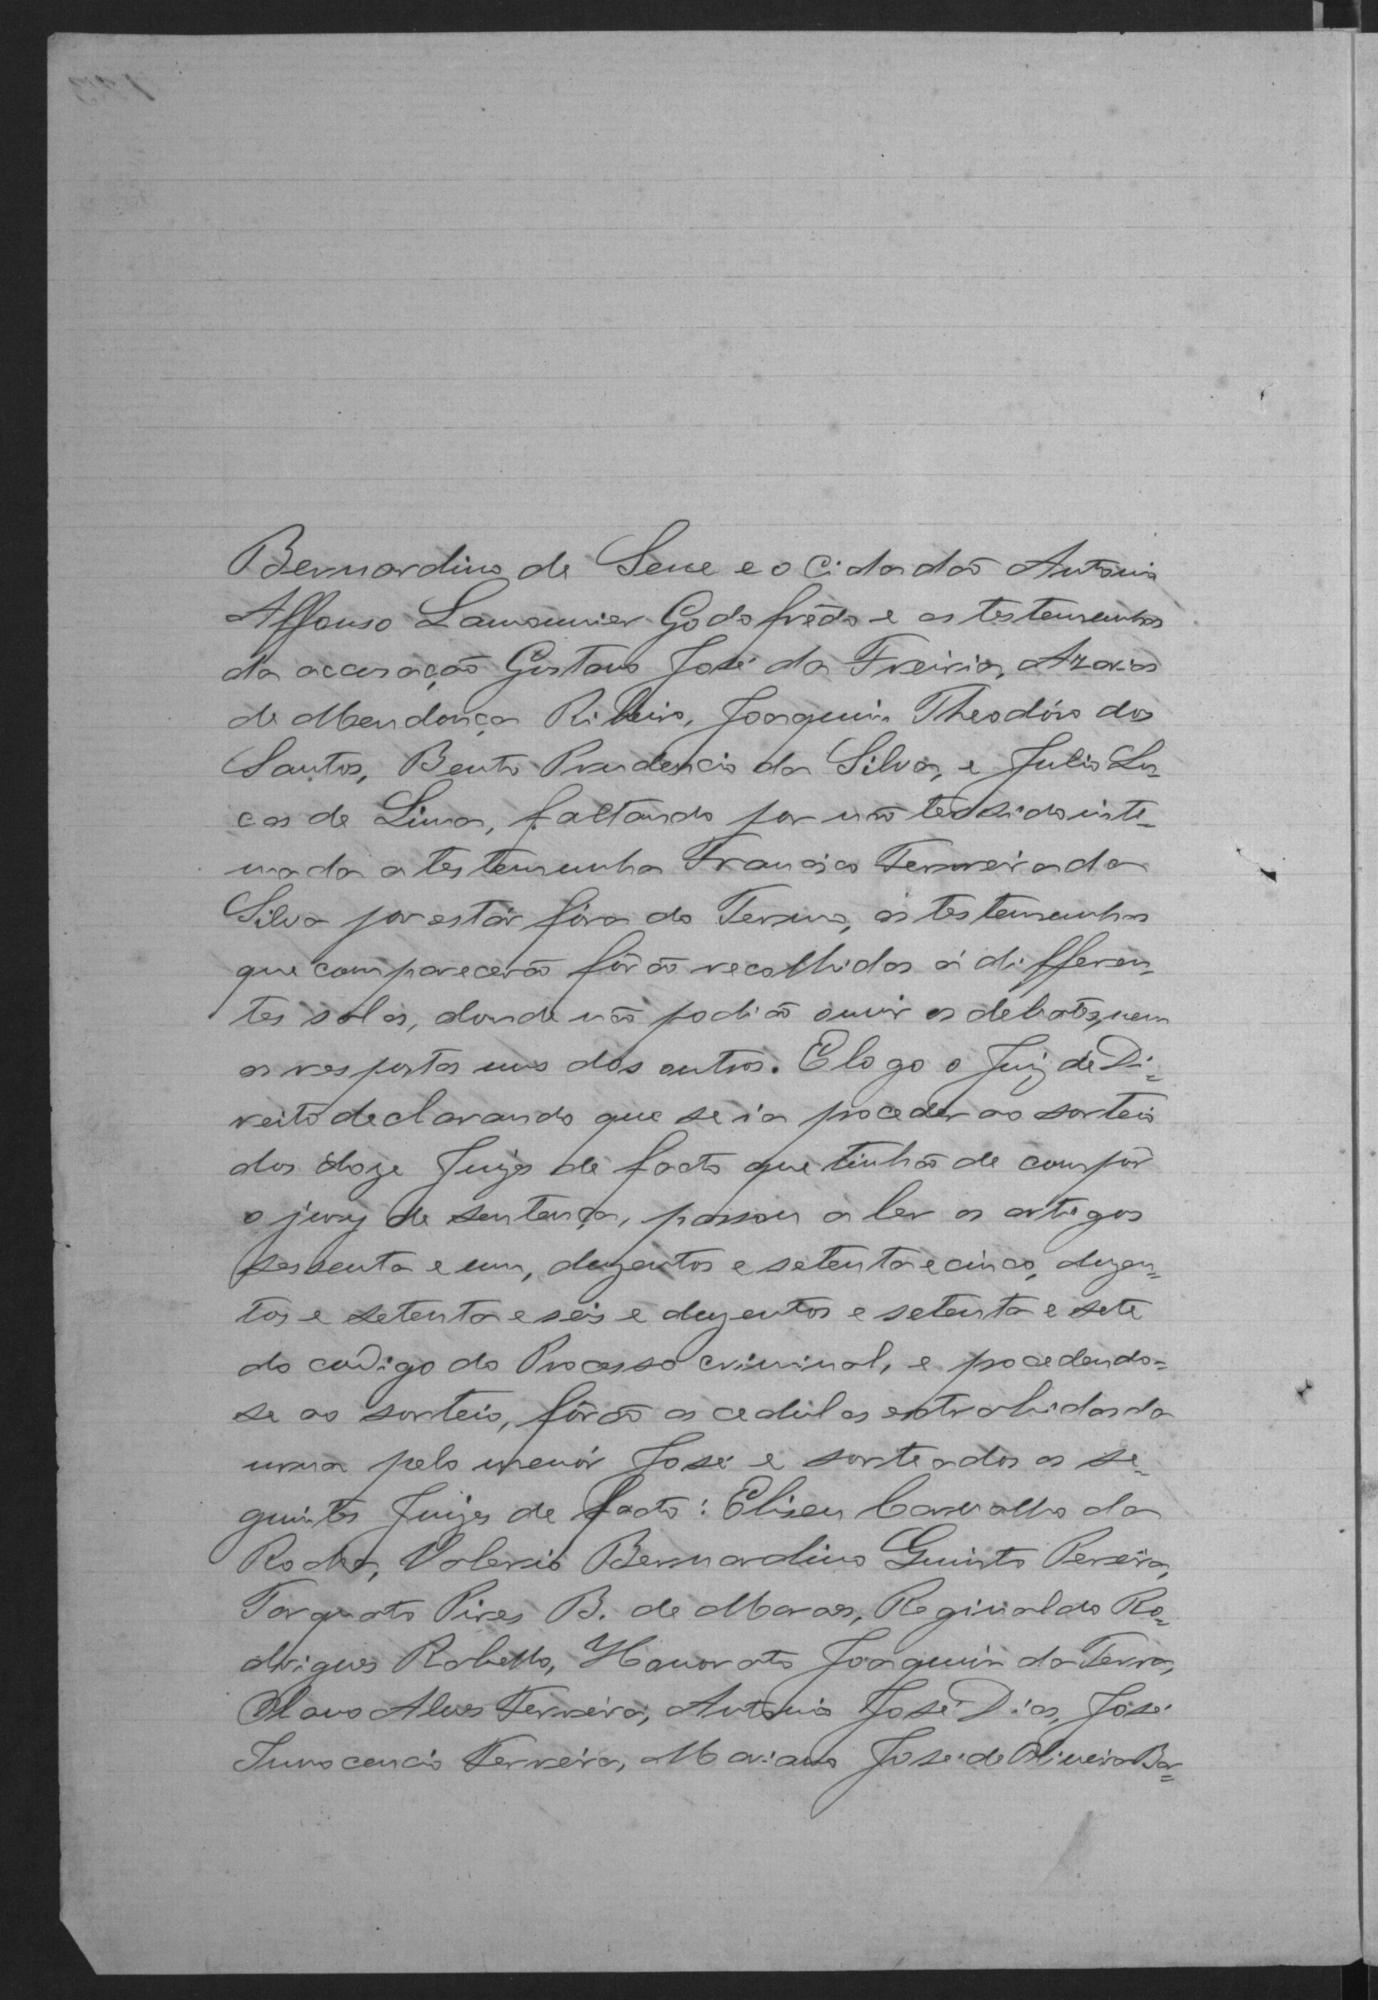 Bernardino de Sene e o cidadão Antonio
Affonso Lamounier Godofrêdo e as testemunhas
da accusação Gustavo José da Freiria, Azarias
de Mendonça Ribeiro, Joaquim Theodóro dos
Santos, Bento Prudencio da Silva, e Julio Lu-
cas de Lima, faltando por não ter sido inti-
mada a testemunha Francisco Ferreira da
Silva por estár fóra do Termo, as testemunhas
que comparecerão fôrão recolhidas á differen-
tes salas, donde não podião ouvir os debates, nem
as respostas uns dos outros. E logo o Juiz de Di-
reito declarando que se ia proceder ao sorteio
dos doze Juizes de facto que tinhão de compôr
o jury de sentença, passou a ler os artigos
sessenta e um, duzentos e setenta e cinco, duzen-
tos e setenta e seis e duzentos e setenta e sete
do codigo do Processo criminal, e procedendo-
se ao sorteio, fôrão as cedulas extrahidas da
urna pelo menór José e sorteados os se-
guintes Juizes de facto: Eliseu Carvalho da
Rocha, Valerio Bernardino Quinto Pereira,
Torquato Pires B. de Moraes, Reginaldo Ro-
drigues Rabello, Honorato Joaquim da Terra,
Olavo Alves Ferreira, Antonio José Dias, José
Innocencio Ferreira, Mariano José de Oliveira Bar-